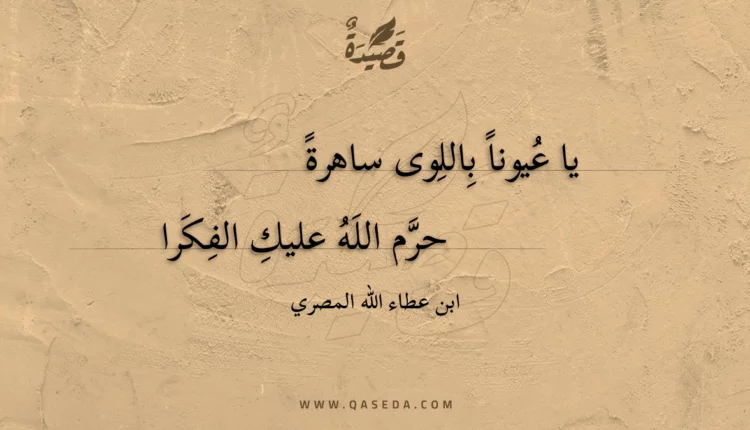 قَصِيْدَةٌ
يا عُيوناً بِاللِوى ساهرةً
حرَّم اللَهُ عليكِ الفِكَرا
ابن عطاء الله المصري
WWW.QASEDA.COM